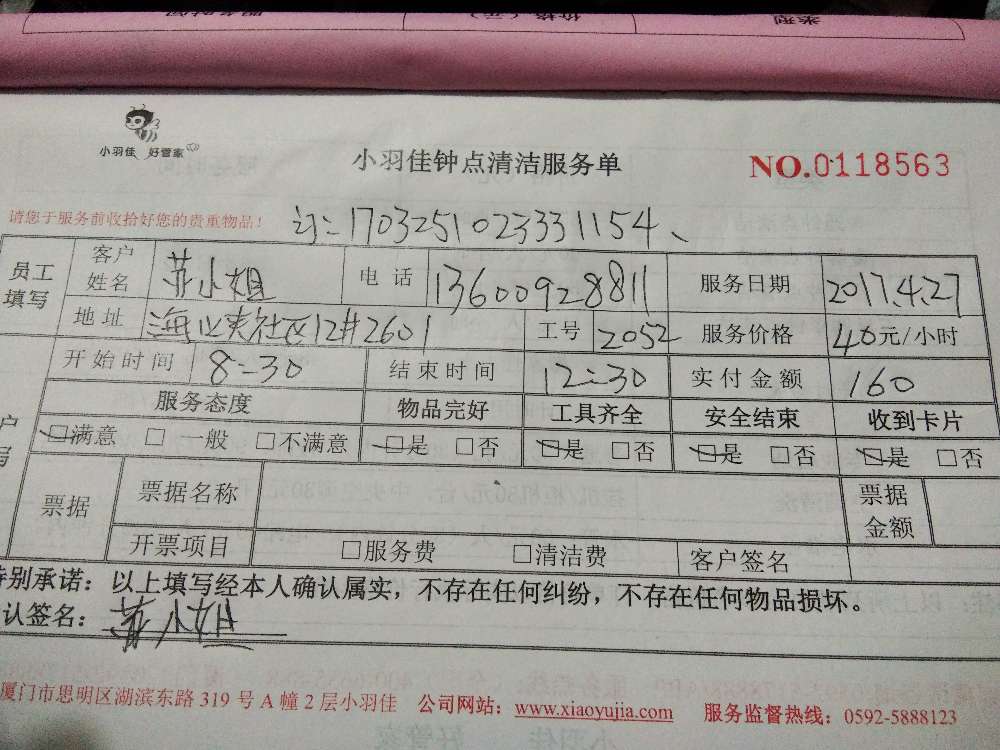 服务时间 价格（元） 类型
小羽佳 好管家
小羽佳钟点清洁服务单 NO.0118563
请您于服务前收拾好您的贵重物品！ 订：1703251023331154、
员工填写 客户姓名 苏小姐 电话 13600928811 服务日期 2017.4.27
地址 社区12#2601 工号 2052 服务价格 40元/小时
开始时间 8:30 结束时间 12:30 实付金额 160
服务态度 物品完好 工具齐全 安全结束 收到卡片
☑满意 □一般 □不满意 ☑是 □否 ☑是 □否 ☑是 □否 ☑是 □否
票据 票据名称 票据金额
开票项目 □服务费 □清洁费 客户签名
特别承诺：以上填写经本人确认属实，不存在任何纠纷，不存在任何物品损坏。
认签名：苏小姐
厦门市思明区湖滨东路 319 号 A 幢 2 层小羽佳 公司网站：www.xiaoyujia.com 服务监督热线：0592-5888123